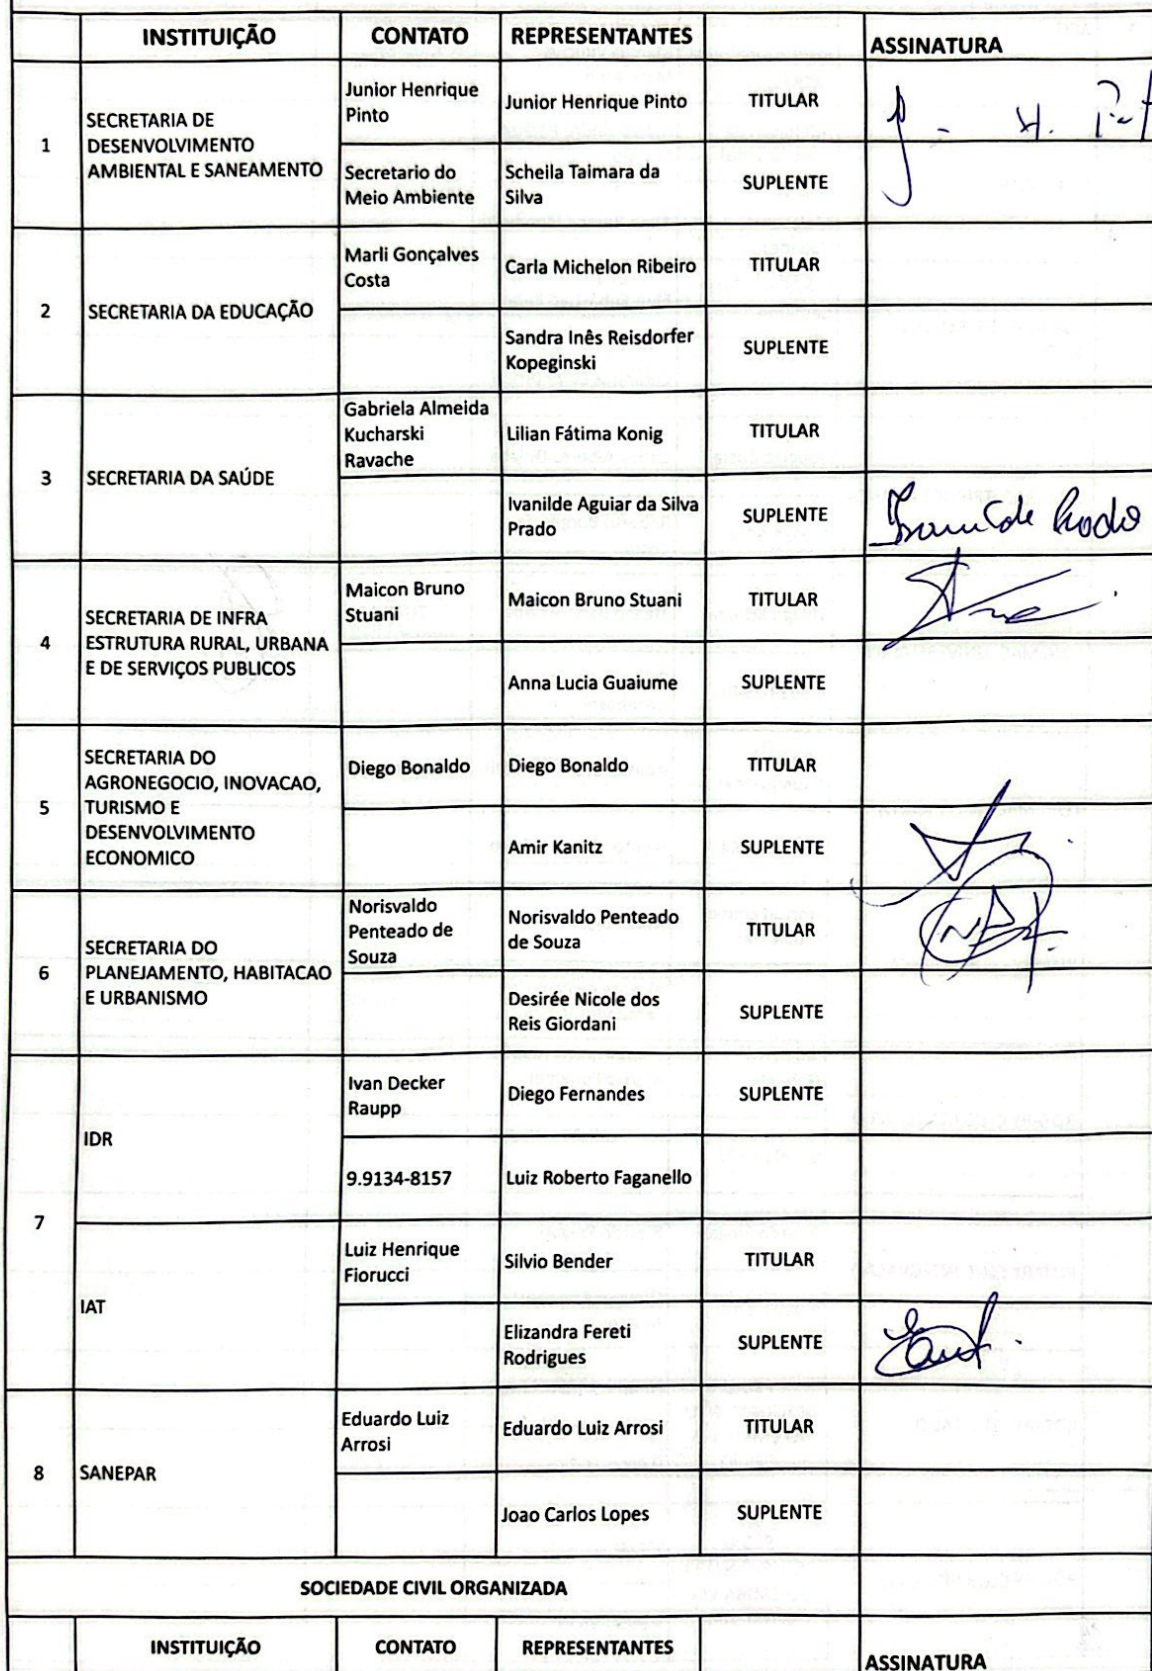 INSTITUIÇÃO CONTATO REPRESENTANTES ASSINATURA
1
SECRETARIA DE
DESENVOLVIMENTO
AMBIENTAL E SANEAMENTO
Junior Henrique
Pinto
Junior Henrique Pinto
TITULAR
J - H. Pint
Secretario do
Meio Ambiente
Scheila Taimara da
Silva
SUPLENTE
2
SECRETARIA DA EDUCAÇÃO
Marli Gonçalves
Costa
Carla Michelon Ribeiro
TITULAR
Sandra Inês Reisdorfer
Kopeginski
SUPLENTE
3
SECRETARIA DA SAÚDE
Gabriela Almeida
Kucharski
Ravache
Lilian Fátima Konig
TITULAR
Ivanilde Aguiar da Silva
Prado
SUPLENTE
Ivanilde Prado
4
SECRETARIA DE INFRA
ESTRUTURA RURAL, URBANA
E DE SERVIÇOS PUBLICOS
Maicon Bruno
Stuani
Maicon Bruno Stuani
TITULAR
Anna Lucia Guaiume
SUPLENTE
5
SECRETARIA DO
AGRONEGOCIO, INOVACAO,
TURISMO E
DESENVOLVIMENTO
ECONOMICO
Diego Bonaldo
Diego Bonaldo
TITULAR
Amir Kanitz
SUPLENTE
6
SECRETARIA DO
PLANEJAMENTO, HABITACAO
E URBANISMO
Norisvaldo
Penteado de
Souza
Norisvaldo Penteado
de Souza
TITULAR
Desirée Nicole dos
Reis Giordani
SUPLENTE
7
IDR
Ivan Decker
Raupp
Diego Fernandes
SUPLENTE
9.9134-8157
Luiz Roberto Faganello
IAT
Luiz Henrique
Fiorucci
Silvio Bender
TITULAR
Elizandra Fereti
Rodrigues
SUPLENTE
8
SANEPAR
Eduardo Luiz
Arrosi
Eduardo Luiz Arrosi
TITULAR
Joao Carlos Lopes
SUPLENTE
SOCIEDADE CIVIL ORGANIZADA
INSTITUIÇÃO CONTATO REPRESENTANTES ASSINATURA